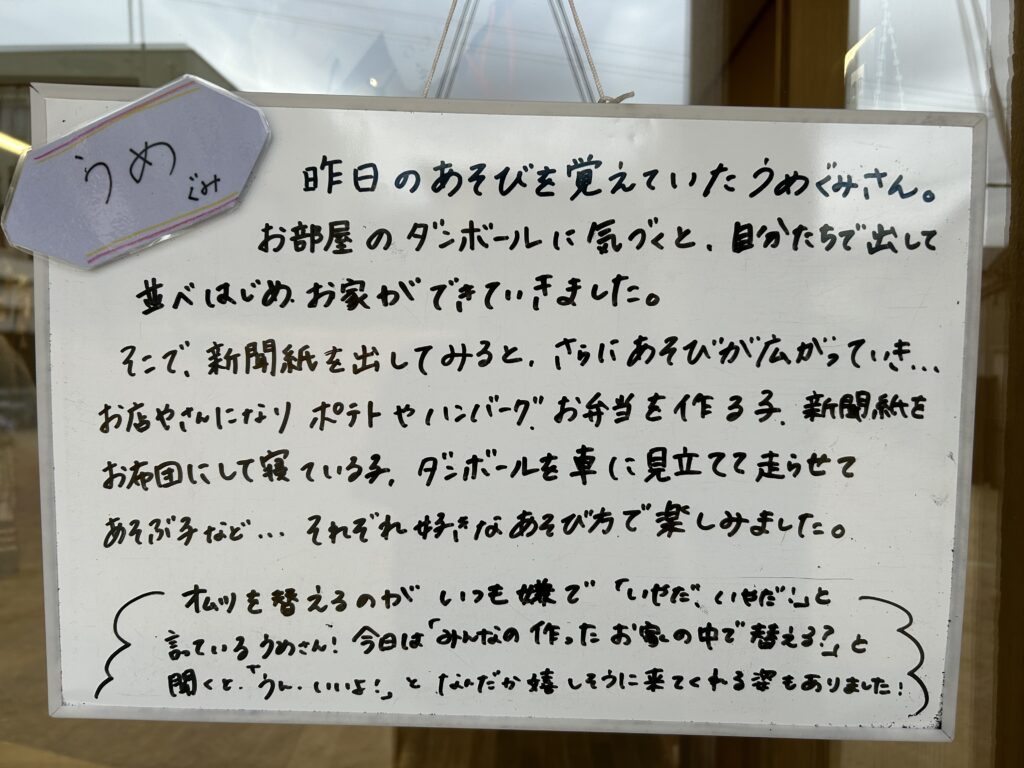 うめ
ぐみ
昨日のあそびを覚えていたうめぐみさん。
お部屋のダンボールに気づくと、自分たちで出して
並べはじめ、お家ができていきました。
そこで、新聞紙を出してみると、さらにあそびが広がっていき…
お店やさんになりポテトやハンバーグ、お弁当を作る子、新聞紙を
お布団にして寝ている子、ダンボールを車に見立てて走らせて
あそぶ子など… それぞれ好きなあそび方で楽しみました。
オムツを替えるのがいつも嫌で「いやだ、いやだ!」と
言っているうめさん!今日は「みんなの作ったお家の中で替える?」と
聞くと、「うん、いいよ!」となんだか嬉しそうに来てくれる姿もありました!